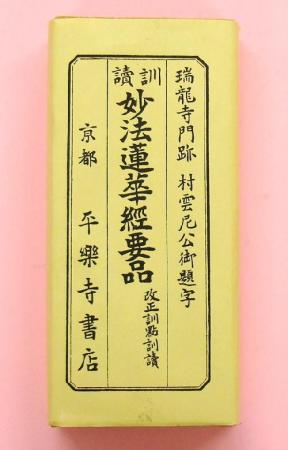 瑞龍寺門跡 村雲尼公御題字
訓讀
妙法蓮華經要品
改正訓點訓讀
京都 平樂寺書店